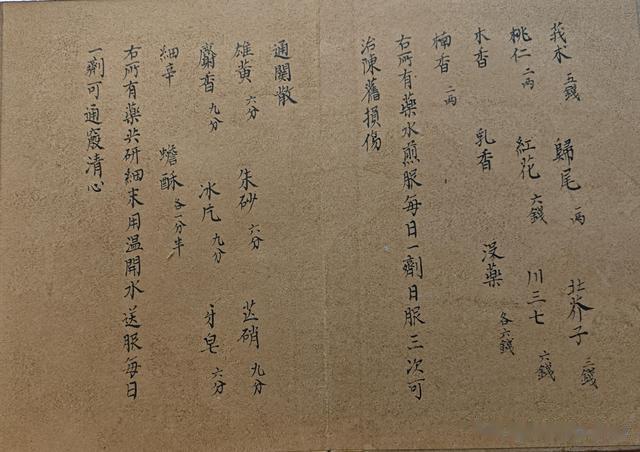 莪术 五錢 歸尾 一兩 北芥子 三錢
桃仁 二兩 紅花 六錢 川三七 六錢
木香 乳香 沒藥 各六錢
楠香 二兩
右所有藥水煎服每日一劑日服三次可
治陳舊損傷
通關散
雄黃 六分 朱砂 六分 芒硝 九分
麝香 九分 冰片 九分 牙皂 六分
細辛 蟾酥 各一分半
右所有藥共研細末用温開水送服每日
一劑可通竅清心